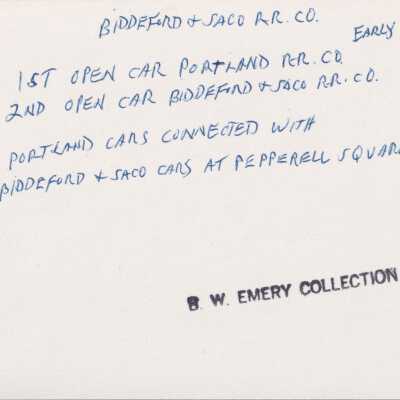 BIDDEFORD & SACO R.R. CO.
EARLY
1ST OPEN CAR PORTLAND R.R. CO
2ND OPEN CAR BIDDEFORD & SACO R.R. CO.
PORTLAND CARS CONNECTED WITH
BIDDEFORD & SACO CARS AT PEPPERELL SQUARE
B. W. EMERY COLLECTION